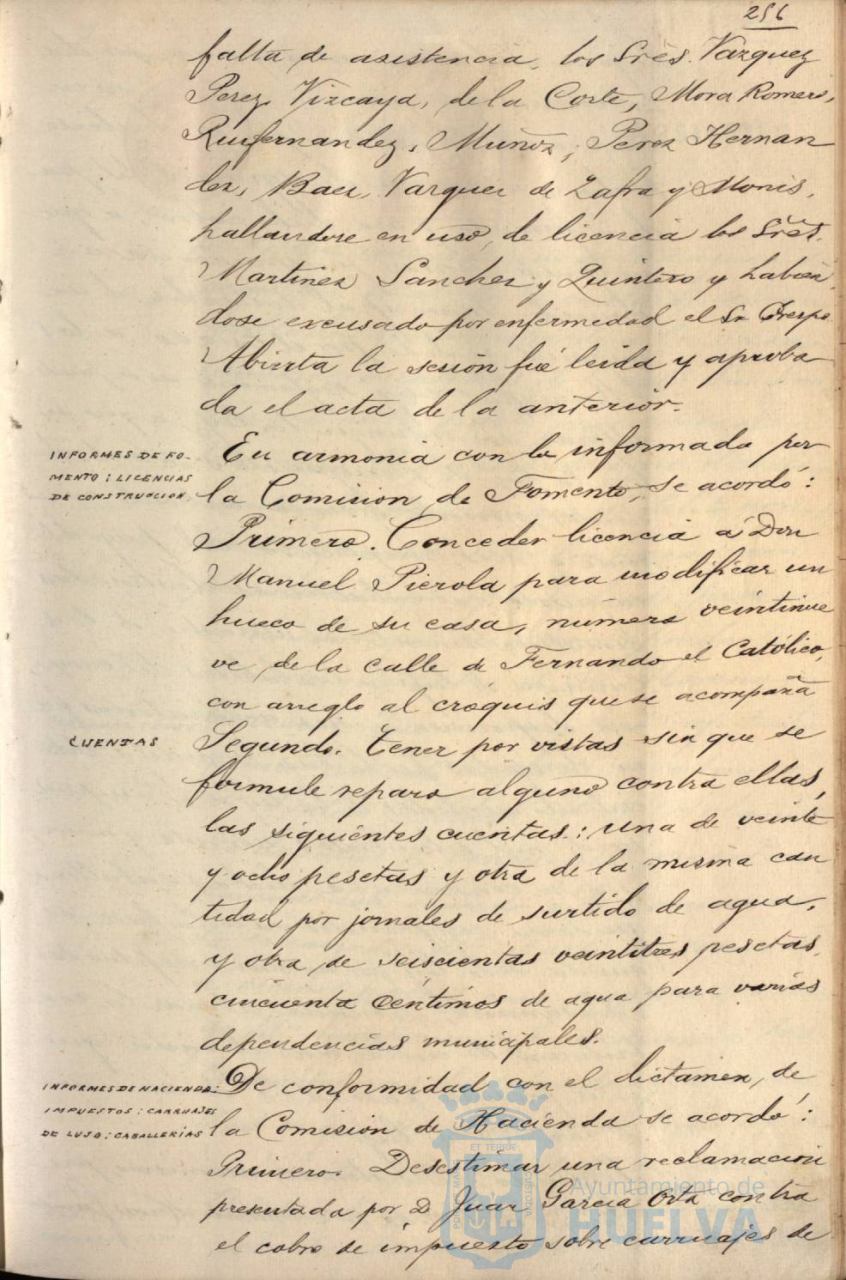 256
falta de asistencia, los Srēs. Vazquez
Perez, Vizcaya, de la Corte, Mora Romero,
Ruifernandez, Muñoz, Perez Hernan
dez, Baez, Vazquez de Zafra y Monis,
hallandose en uso, de licencia los Srēs.
Martinez Sanchez y Quintero y habien
dose excusado por enfermedad el Sr Crespo
Abierta la sesión fué leida y aproba
da el acta de la anterior.
INFORMES DE FO-
MENTO: LICENCIAS
DE CONSTRUCCION.
En armonia con lo informado por
la Comision de Fomento, se acordó:
Primero. Conceder licencia á Don
Manuel Pierola para modificar un
hueco de su casa, número veintinue
ve de la calle de Fernando el Católico,
con arreglo al cróquis que se acompaña
CUENTAS
Segundo. Tener por vistas sin que se
formule reparo alguno contra ellas,
las siguientes cuentas: una de veinte
y ocho pesetas y otra de la misma can
tidad por jornales de surtido de agua,
y otra de seiscientas veintitres pesetas,
cincuenta céntimos de agua para varias
dependencias municipales.
INFORMES DE HACIENDA:
IMPUESTOS: CARRUAJES
DE LUJO: CABALLERÍAS
De conformidad con el dictamen, de
la Comision de Hacienda se acordó:
Primero. Desestimar una reclamacion
presentada por D Juan Garcia Orta contra
el cobro de impuesto sobre carruajes de
Ayuntamiento de
HUELVA